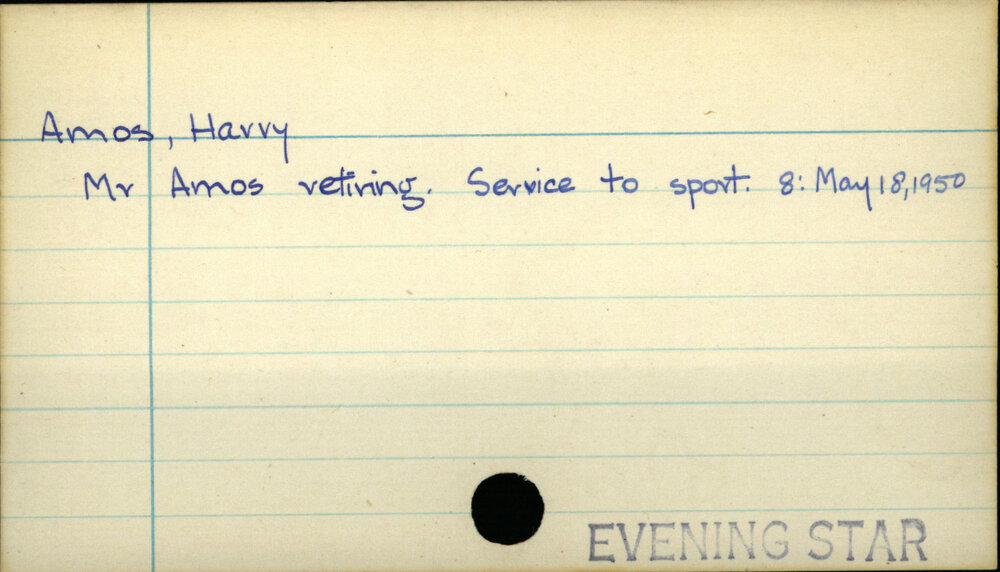 Amos, Harry
Mr Amos retiring. Service to sport. 8: May 18, 1950
EVENING STAR